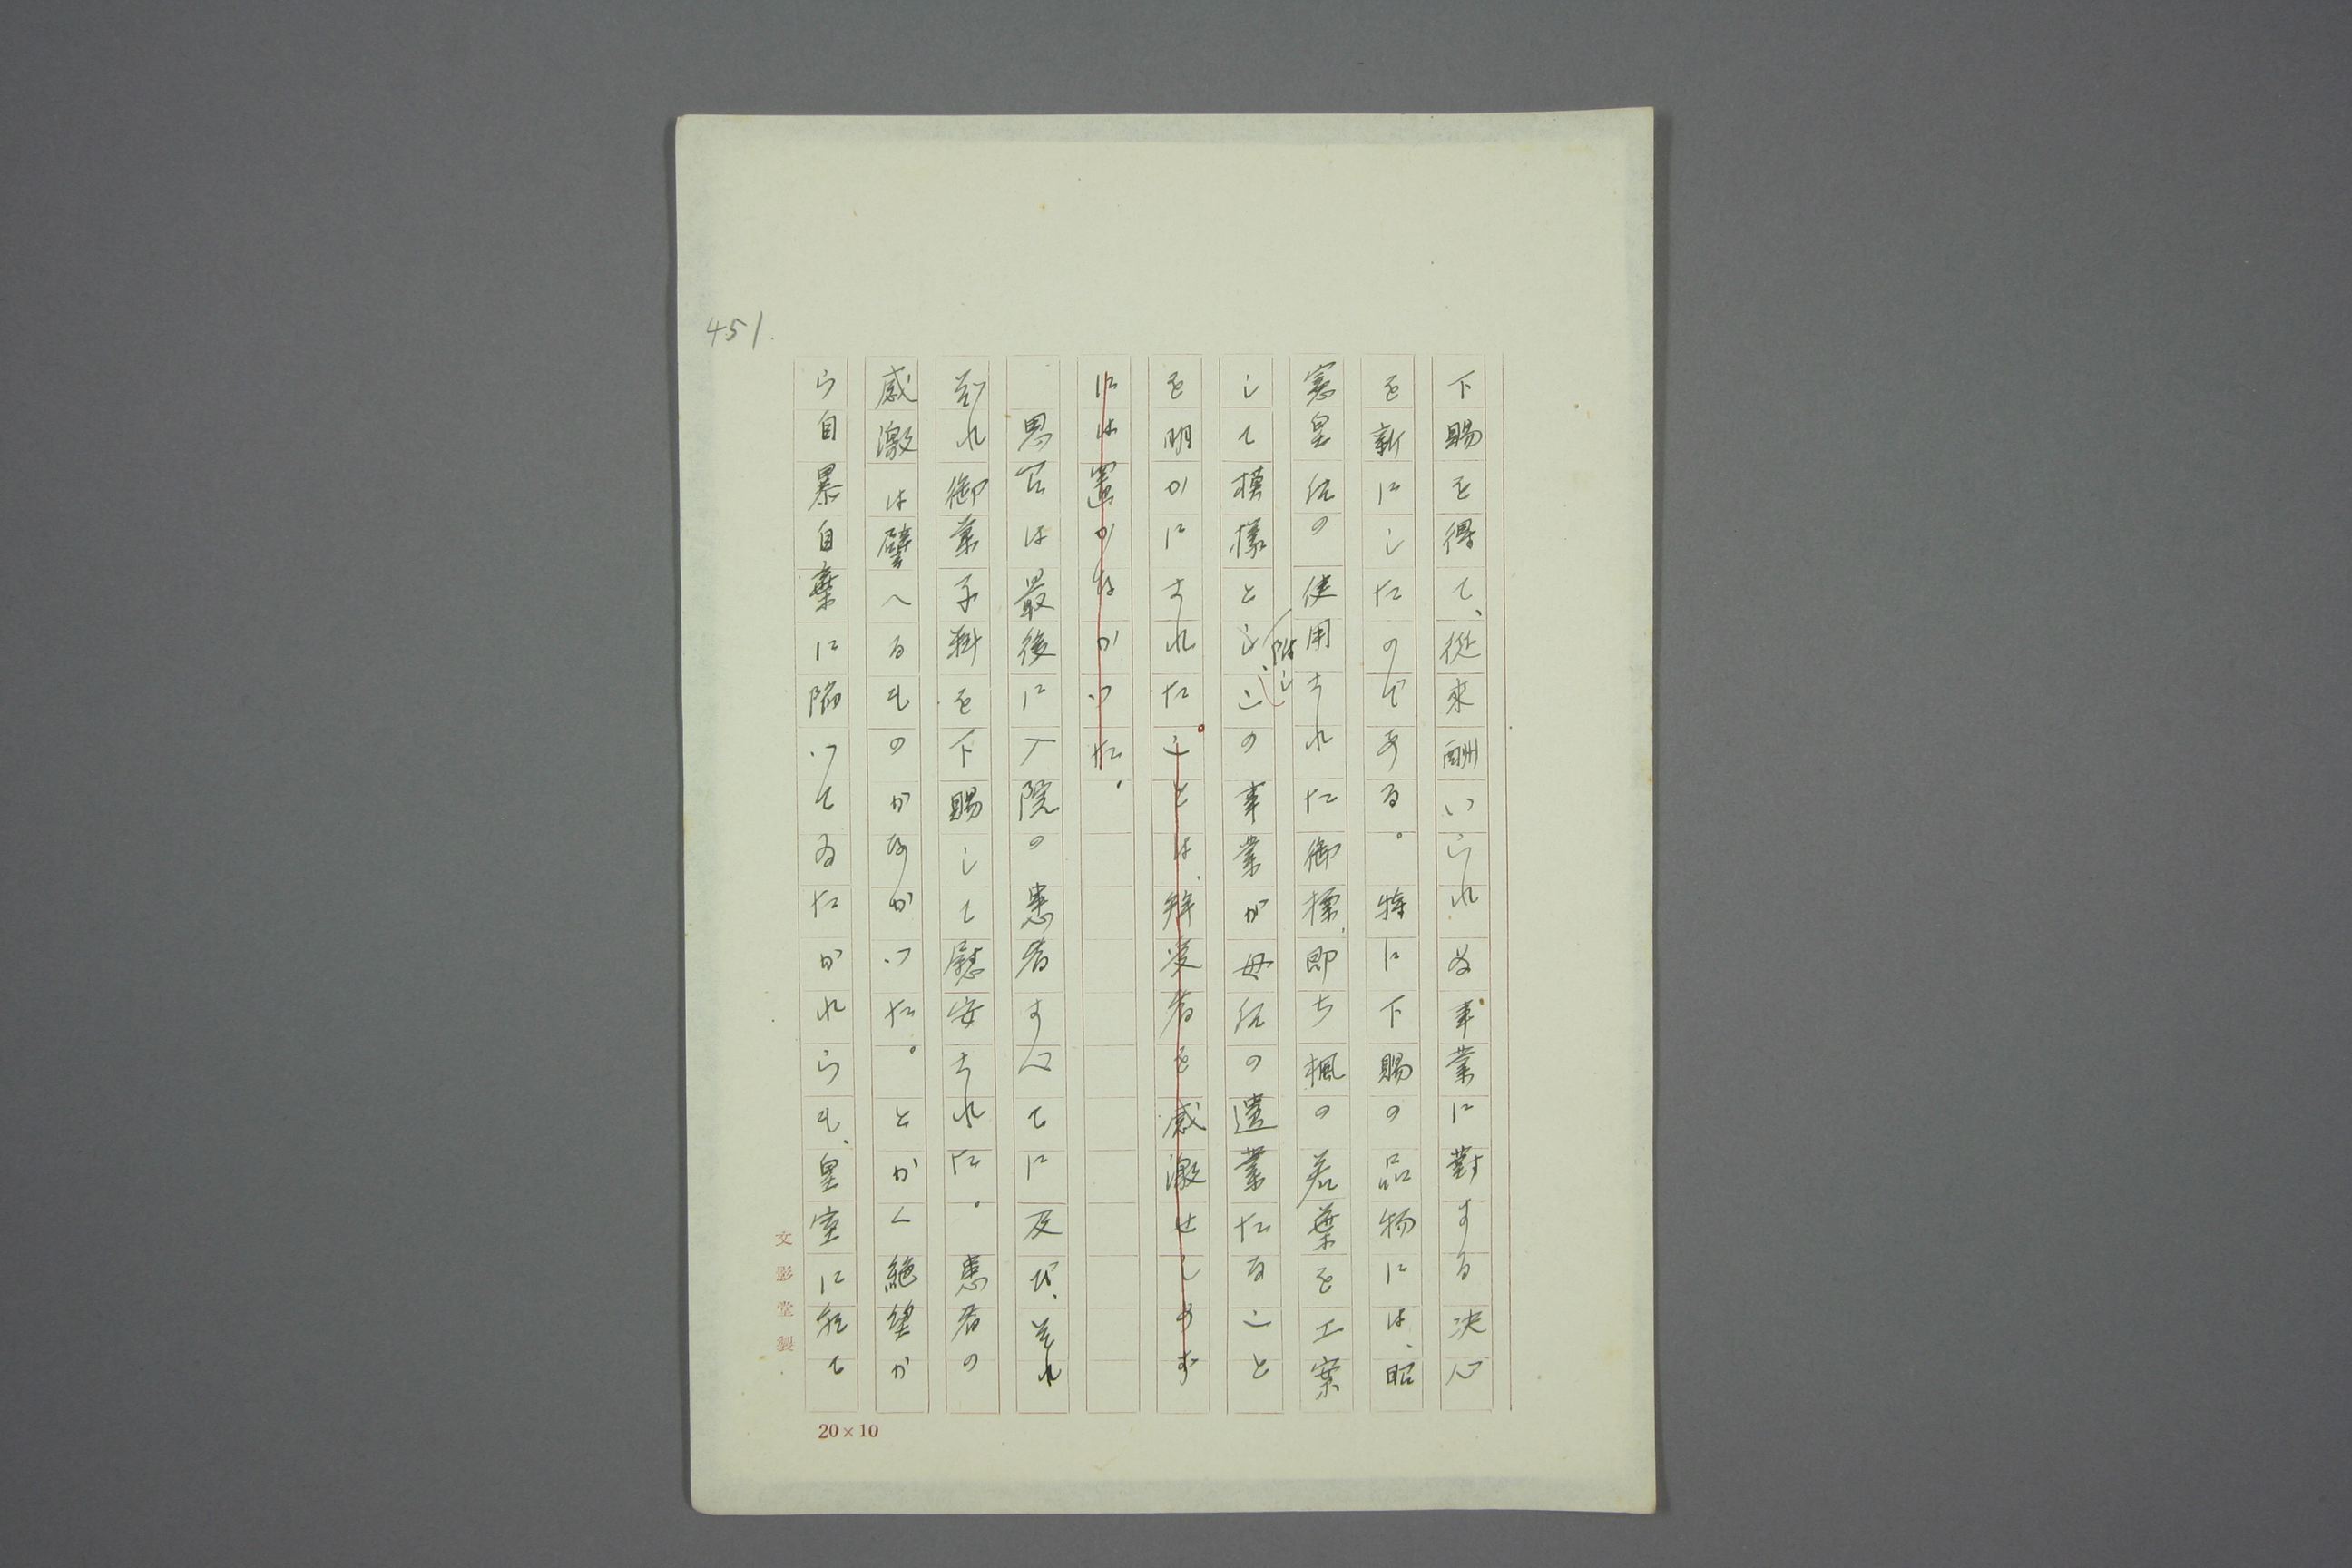 451.
下賜を得て、從来酬いられぬ事業に對する決心
を新にしたのである。特に下賜の品物には、昭
憲皇后の使用された御標、即ち楓の若葉を工案
して模様とし附し、この事業が母后の遺業たること
を明かにされた。ことは、拜受者を感激せしめず
には置かなかつた。
恩召は最後に入院の患者すべてに及び、それ
ぞれ御菓子料を下賜して慰安された。患者の
感激は譬へるものがなかつた。とかく絶望か
ら自暴自棄に陥つてゐたかれらも、皇室に於て
文影堂製
20×10